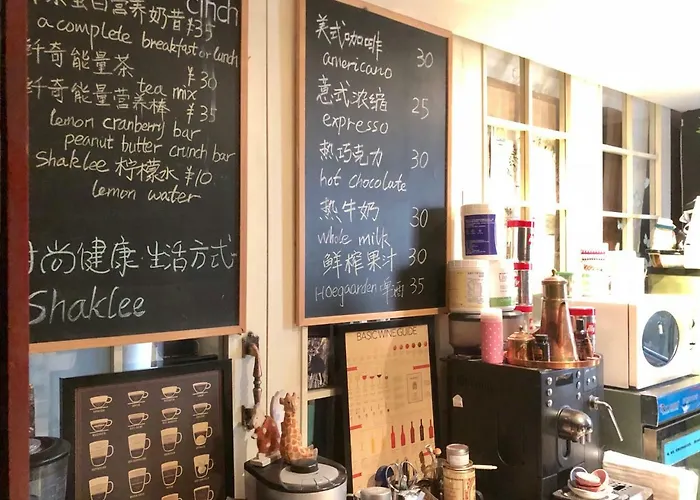 cinch
蛋白营养奶昔 ¥35
a complete breakfast or lunch
纤奇能量茶 ¥30
tea mix
纤奇能量营养棒 ¥35
lemon cranberry bar
peanut butter crunch bar
Shaklee 柠檬水 ¥10
lemon water
时尚健康·生活方式
Shaklee
美式咖啡 30
americano
意式浓缩 25
expresso
热巧克力 30
hot chocolate
热牛奶 30
whole milk
鲜榨果汁 30
Hoegaarden 啤酒 35
BASIC WINE GUIDE